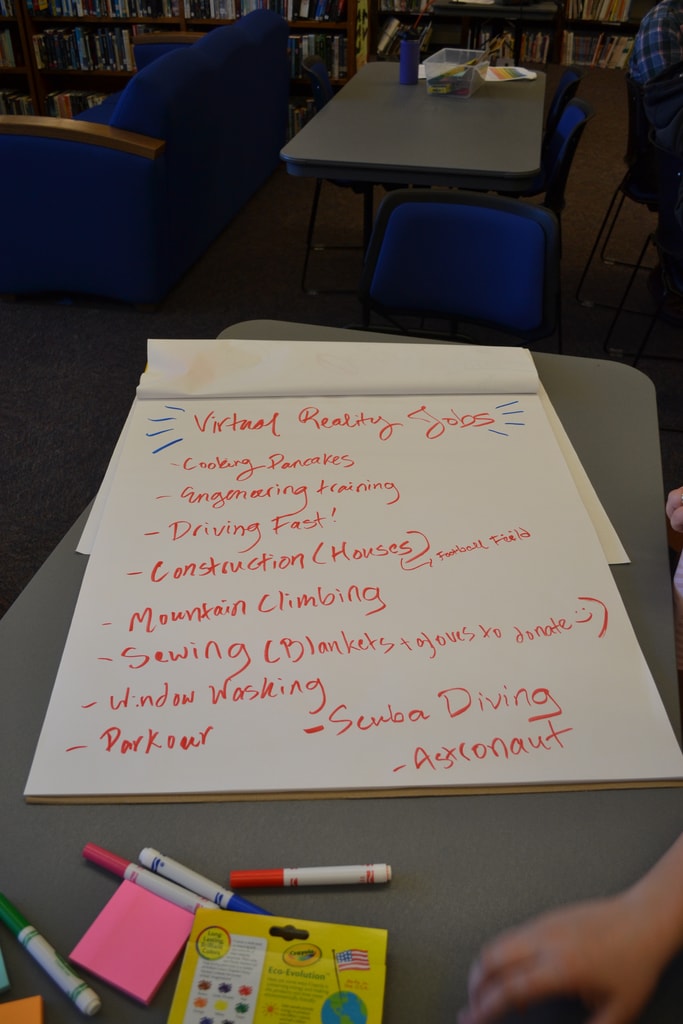 Virtual Reality Jobs
- Cooking Pancakes
- Engeneering training
- Driving Fast!
- Construction (Houses)
Football Field
- Mountain Climbing
- Sewing (Blankets + gloves to donate :))
- Window Washing
- Parkour
- Scuba Diving
- Astronaut
Long Lasting Brilliant Colors
Crayola
Eco-Evolution™